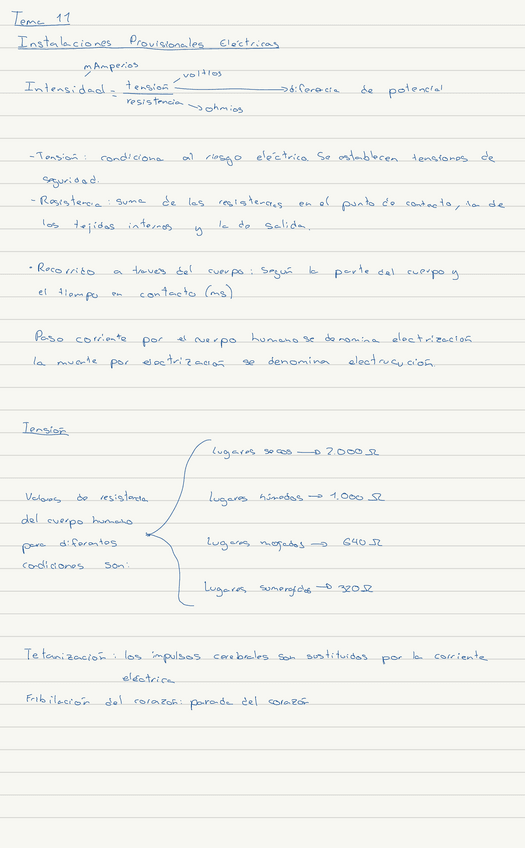 Tema 11
Instalaciones Provisionales Eléctricas
mAmperios
voltios
Intensidad = tensión → diferecia de potencial
resistencia → ohmios
- Tensión: condiciona al riesgo eléctrico Se establecen tensiones de
seguridad.
- Resistencia: suma de las resistencias en el punto de contacto, la de
los tejidos internos y la de salida.
· Recorrido a traves del cuerpo: Según la parte del cuerpo y
el tiempo en contacto (ms)
Paso corriente por el cuerpo humano se denomina electrización
la muerte por electrización se denomina electrucución.
Tensión
lugares secos → 2.000 Ω
Valores de resistencia lugares húmedos → 1.000 Ω
del cuerpo humano
para diferentes lugares mojados → 640 Ω
condiciones son:
Lugares sumergidos → 320 Ω
Tetanización: los impulsos cerebrales son sustituidos por la corriente
eléctrica
Fribilación del corazón: parada del corazón